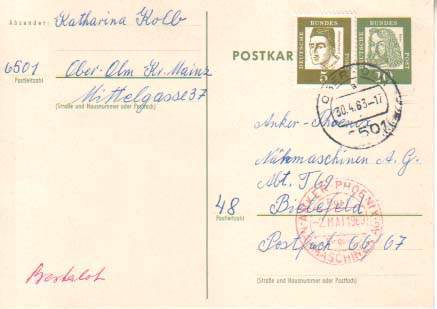 Absender: Katharina Kolb
6501 Ober-Olm Kr. Mainz
Postleitzahl
Mittelgasse 37
(Straße und Hausnummer oder Postfach)
DEUTSCHE BUNDESPOST
5
DEUTSCHE BUNDESPOST
10
POSTKAR
OBER-
30.4.63-17
6501
Anker-Phoenix
Nähmaschinen A.G.
Abt. T 69
48 Bielefeld
Postleitzahl
Postfach 66/67
(Straße und Hausnummer oder Postfach)
ANKER-PHOENIX
-2. MAI 1963
NÄHMASCHINEN